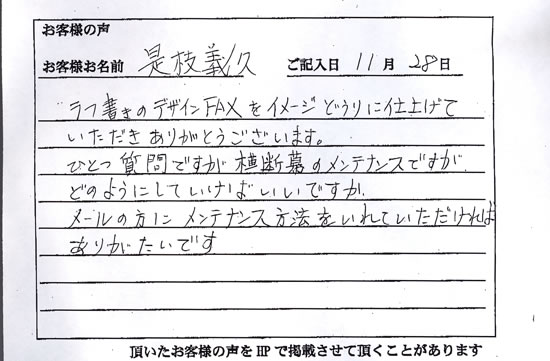 お客様の声
お客様お名前 是枝義久 ご記入日 11月28日
ラフ書きのデザインFAXをイメージどうりに仕上げて
いただきありがとうございます。
ひとつ質問ですが横断幕のメンテナンスですが
どのようにしていけばいいですか
メールの方にメンテナンス方法をいれていただければ
ありがたいです
頂いたお客様の声をHPで掲載させて頂くことがあります